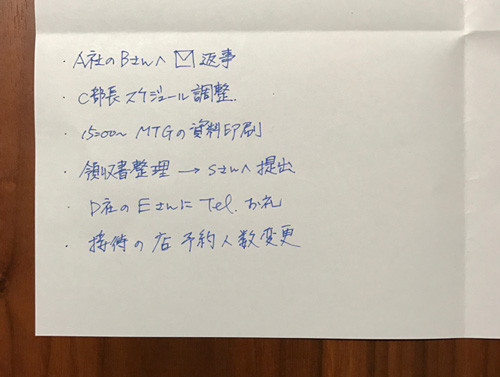 ・A社のBさんへ ✉ 返事
・C部長スケジュール調整.
・15:00〜 MTGの資料印刷
・領収書整理 → Sさんへ提出
・D社のEさんに Tel. お礼
・接待の店 予約人数変更